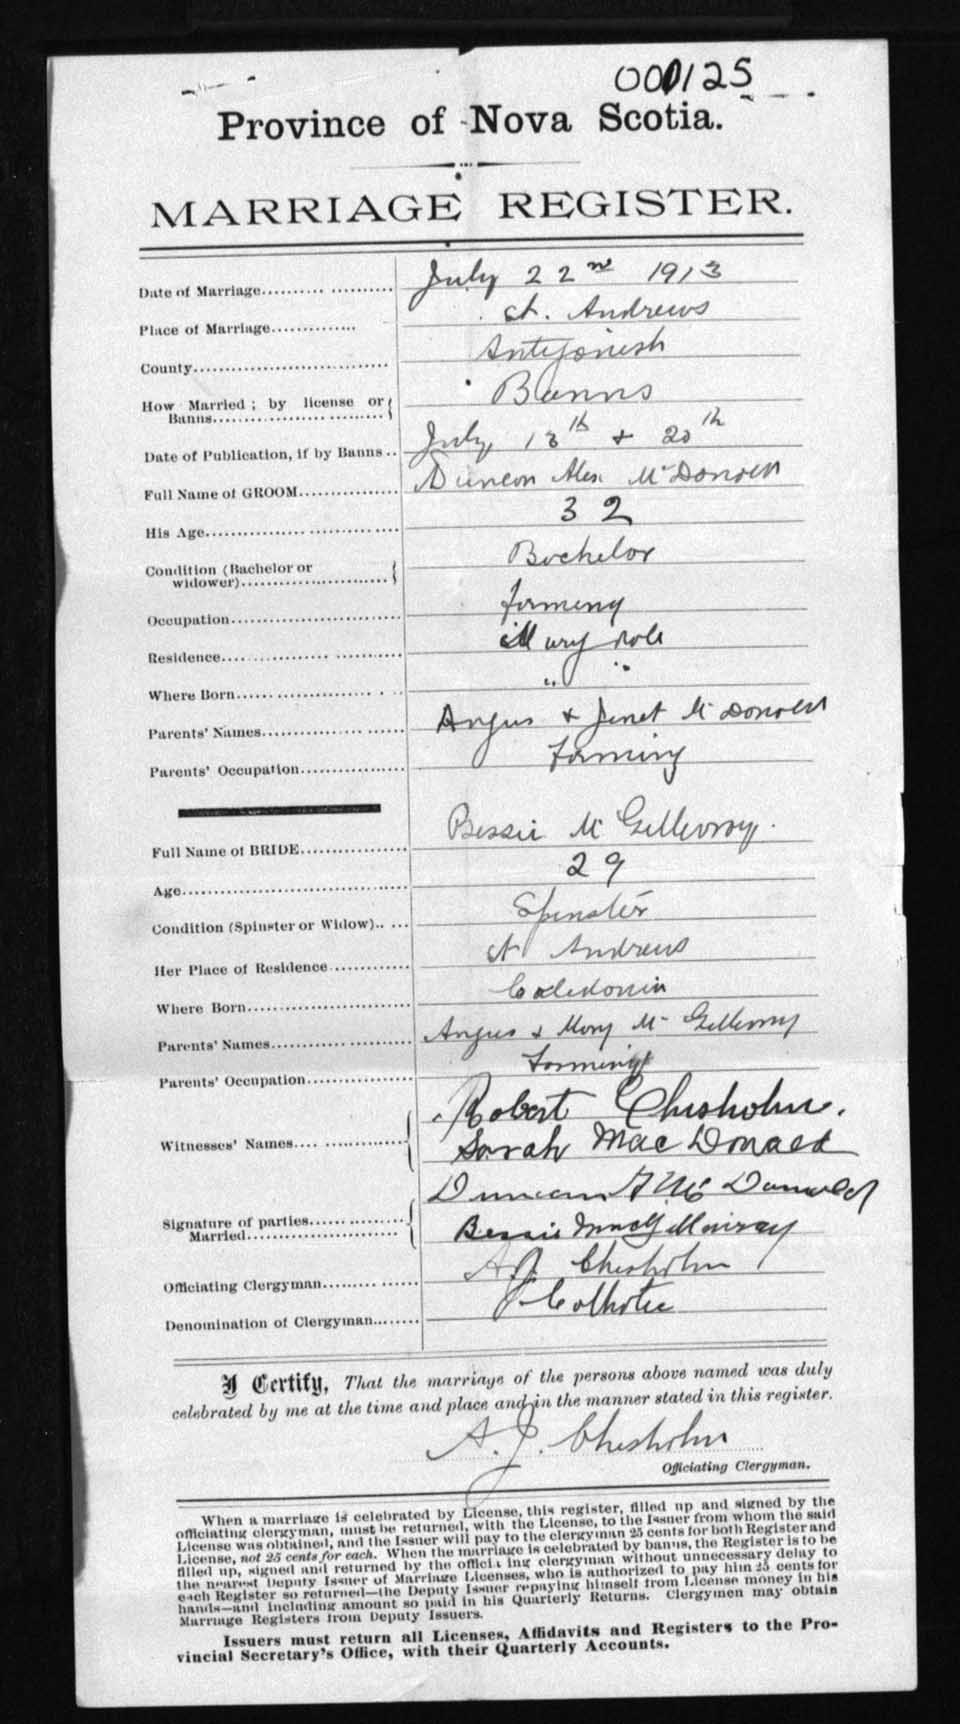 000125
Province of Nova Scotia.
MARRIAGE REGISTER.
Date of Marriage.......... ........... July 22nd 1913
Place of Marriage.............. St. Andrews
County................................ Antigonish
How Married ; by license or
Banns.................. ......... Banns
Date of Publication, if by Banns .. July 13th & 20th
Full Name of GROOM............... Duncan Alex McDonald
His Age............... ............... 32
Condition (Bachelor or
widower).............................. Bachelor
Occupation............................ farming
Residence............. .............. Marydale
Where Born...... ............... . . . " "
Parents' Names.............. ....... Angus & Janet McDonald
Parents' Occupation................. Farming
Full Name of BRIDE................. Bessie McGillivray.
Age.................................... 29
Condition (Spinster or Widow).. ... Spinster
Her Place of Residence............. St Andrews
Where Born.......................... Caledonia
Parents' Names....................... Angus & Mary McGillivray
Parents' Occupation................. Farming
Robert Chisholm.
Witnesses' Names.... ..............
Sarah MacDonald
Duncan A McDonald
Signature of parties.................
Married.........................
Bessie MacGillivray
Officiating Clergyman........ ...... A. J. Chisholm
Denomination of Clergyman........ Catholic
I Certify, That the marriage of the persons above named was duly
celebrated by me at the time and place and in the manner stated in this register.
A. J. Chisholm
Officiating Clergyman.
When a marriage is celebrated by License, this register, filled up and signed by the
officiating clergyman, must be returned, with the License, to the Issuer from whom the said
License was obtained, and the Issuer will pay to the clergyman 25 cents for both Register and
License, not 25 cents for each. When the marriage is celebrated by banns, the Register is to be
filled up, signed and returned by the officiating clergyman without unnecessary delay to
the nearest Deputy Issuer of Marriage Licenses, who is authorized to pay him 25 cents for
each Register so returned—the Deputy Issuer repaying himself from License money in his
hands—and including amount so paid in his Quarterly Returns. Clergymen may obtain
Marriage Registers from Deputy Issuers.
Issuers must return all Licenses, Affidavits and Registers to the Pro-
vincial Secretary's Office, with their Quarterly Accounts.